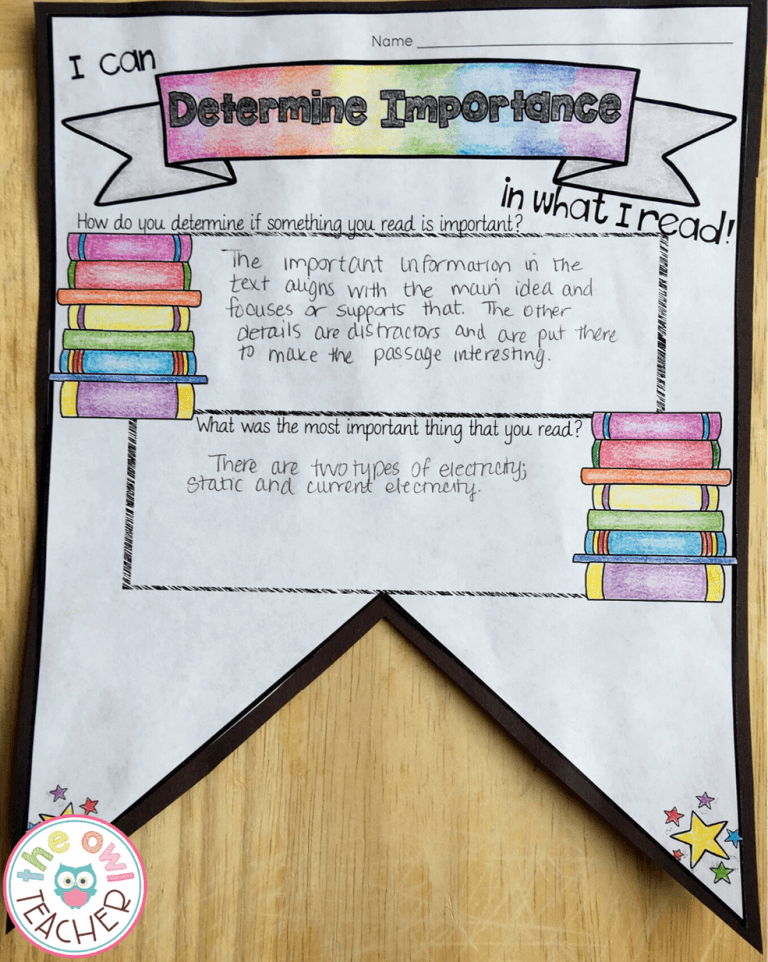 Name
I can
Determine Importance
in what I read!
How do you determine if something you read is important?
The important information in the
text aligns with the main idea and
focuses or supports that. The other
details are distractors and are put there
to make the passage interesting.
What was the most important thing that you read?
There are two types of electricity;
static and current electricity.
the owl
TEACHER